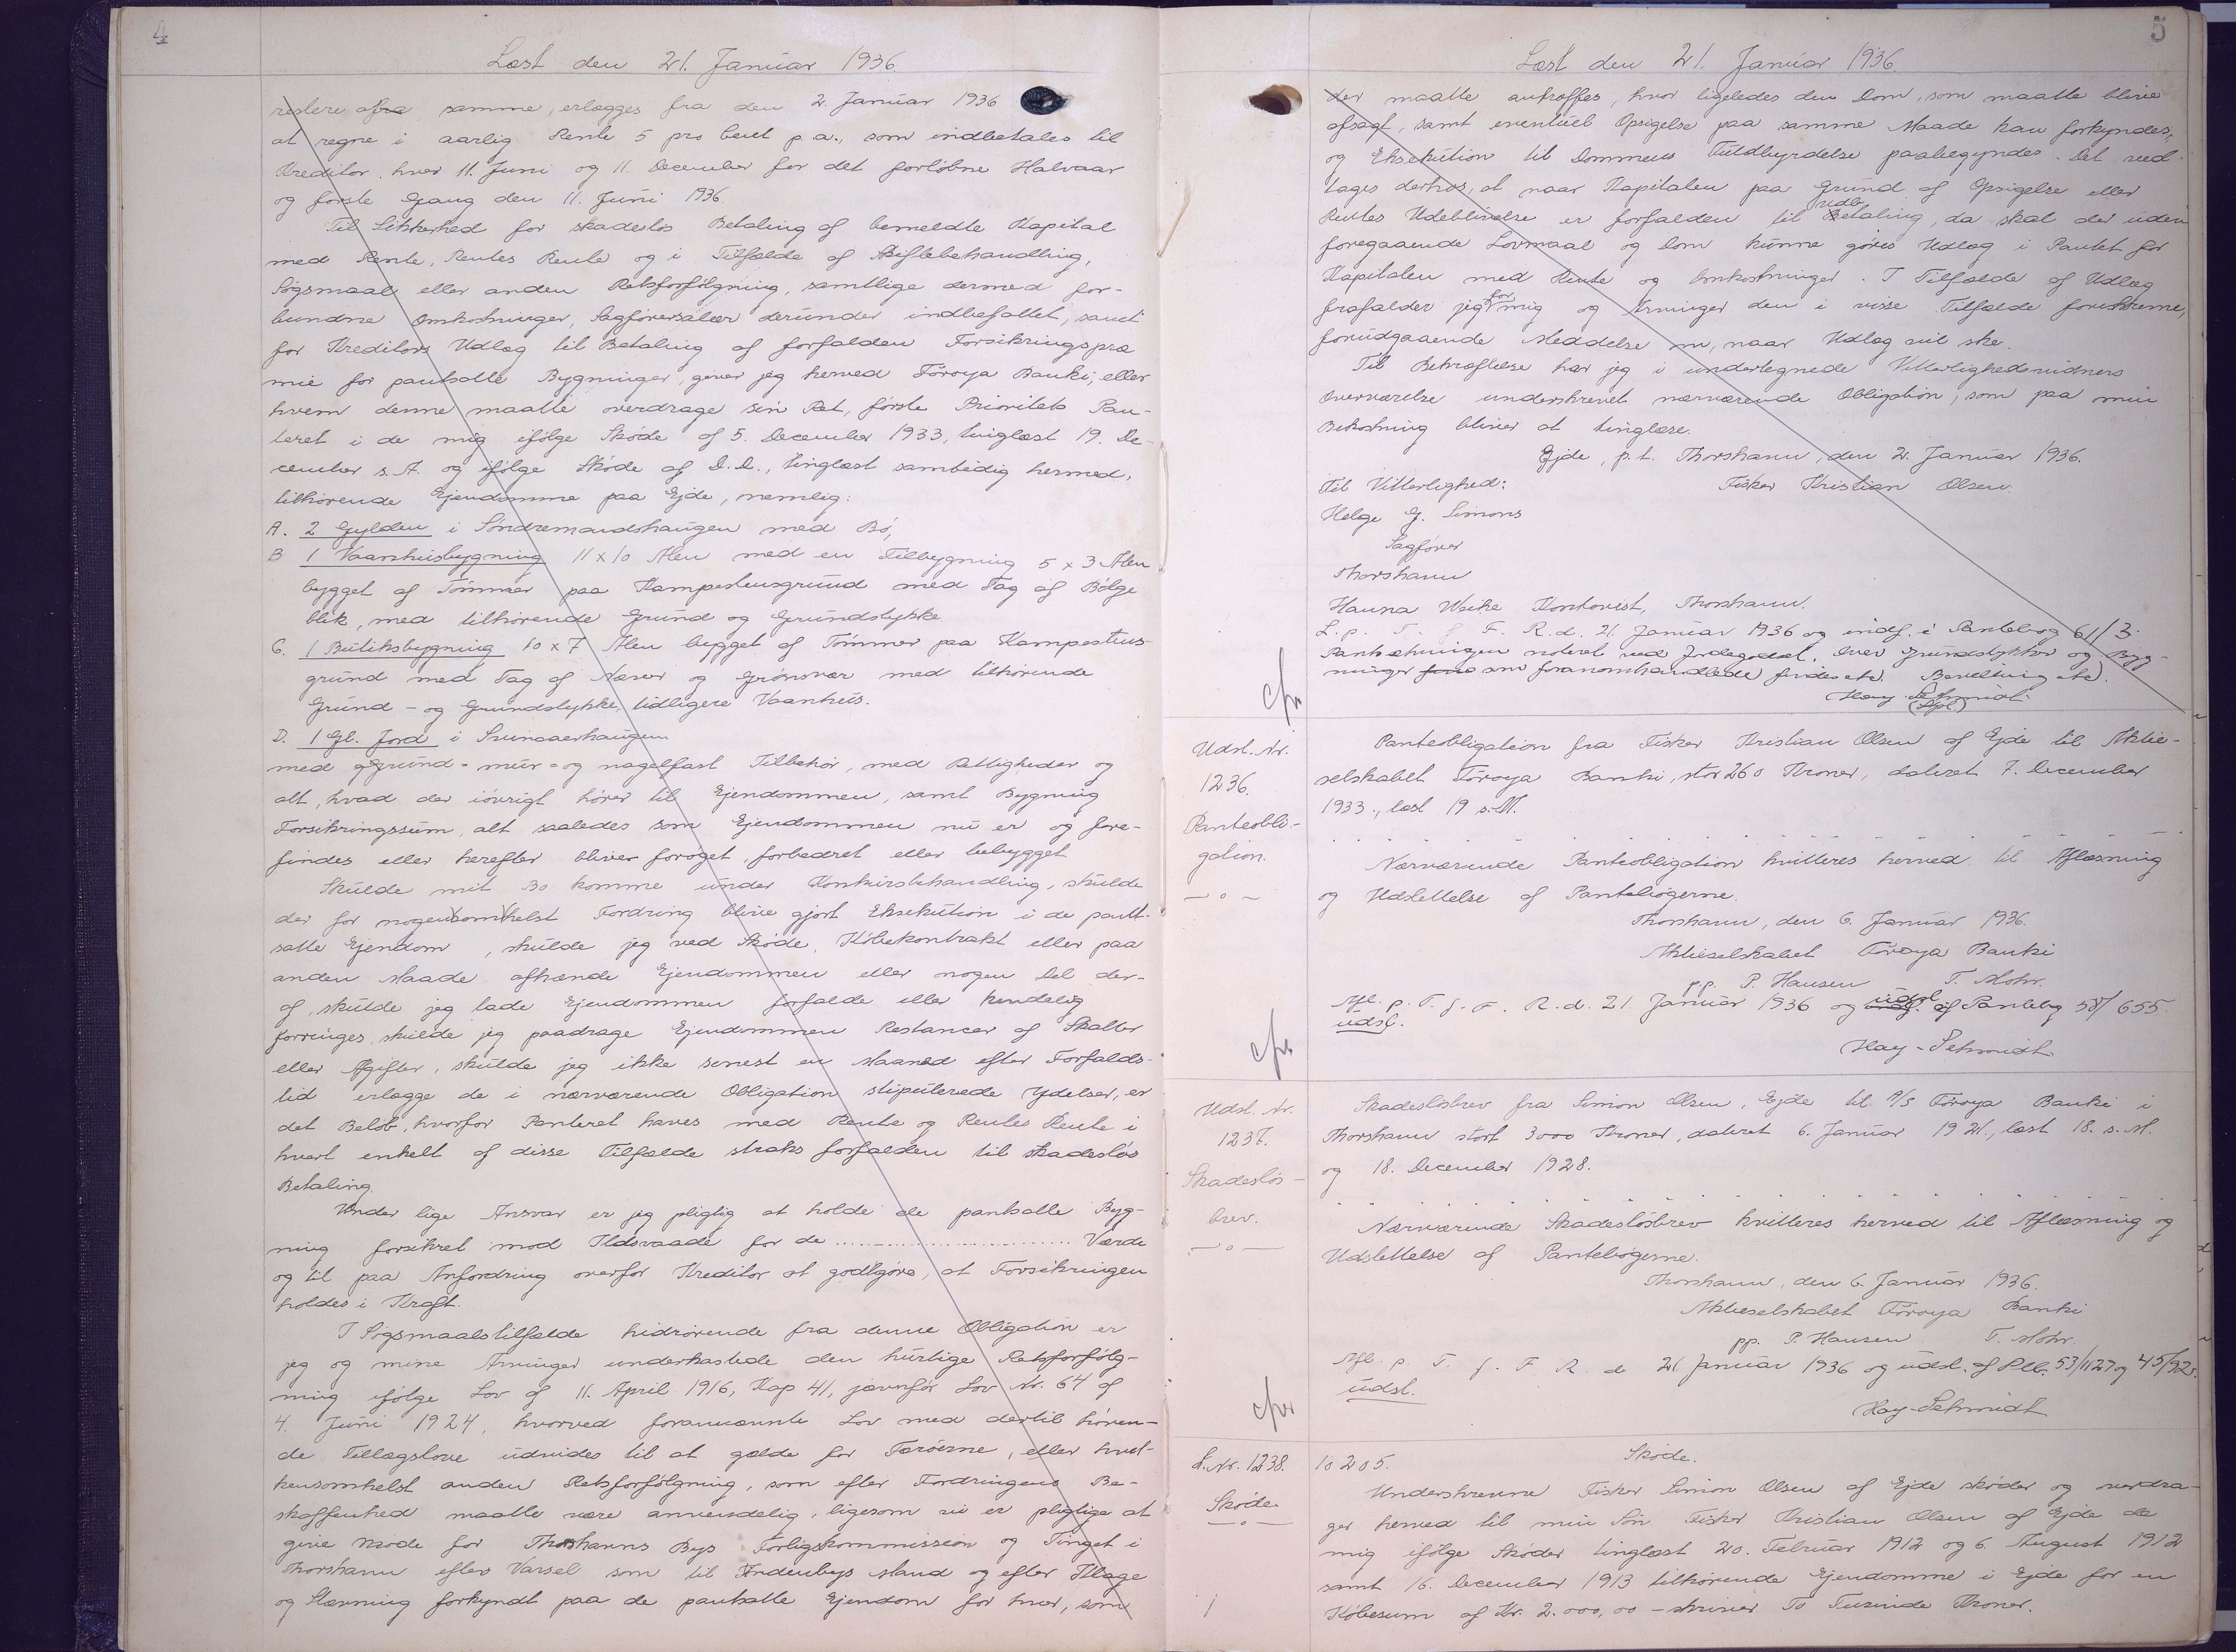 4
Læst den 21. Januar 1936
restere afra samme, erlægges fra den 2. Januar 1936
at regne i aarlig Rente 5 pro Cent p.a., som indbetales til
Kreditor hver 11. Juni og 11. December for det forløbne Halvaar
og første Gang den 11. Juni 1936
Til Sikkerhed for skadesløs Betaling af bemeldte Kapital
med Rente, Rentes Rente og i Tilfælde af Skiftebehandling,
Søgsmaal eller anden Retsforfølgning, samtlige dermed for-
bundne Omkostninger, Sagførersalær derunder indbefattet, samt
for Kreditors Udlæg til Betaling af forfalden Forsikringspræ
mie for pantsatte Bygninger, giver jeg herved Føroya Banki, eller
hvem denne maatte overdrage sin Ret, første Prioritets Pan-
teret i de mig ifølge Skøde af 5. December 1933, tinglæst 19. De-
cember s.A. og ifølge Skøde af D.D., tinglæst samtidig hermed,
tilhørende Ejendomme paa Ejde, nemlig:
A. 2 Gylden i Søndremandshaugen med Bø,
B 1 Vaanhusbygning 11 x 10 Alen med en Tilbygning 5 x 3 Alen
bygget af Tømmer paa Kampestensgrund med Tag af Bølge
blik, med tilhørende Grund og Grundstykke
C. 1 Butiksbygning 10 x 7 Alen bygget af Tømmer paa Kampestens-
grund med Tag af Næver og Grønsvær med tilhørende
Grund- og Grundstykke, tidligere Vaanhus.
D. 1 Gl. Jord i Svinaaerhaugen
med Grund- mur- og nagelfast Tilbehør, med Rettigheder og
alt, hvad der iøvrigt hører til Ejendommen, samt Bygning
Forsikringssum, alt saaledes som Ejendommen nu er og fore-
findes eller herefter bliver forøget, forbedret eller bebygget
Skulde mit Bo komme under Konkursbehandling, skulde
der for nogensomhelst Fordring blive gjort Eksekution i de pant-
satte Ejendom, skulde jeg ved Skøde, Købekontrakt eller paa
anden Maade afhænde Ejendommen eller nogen Del der-
af, skulde jeg lade Ejendommen forfalde eller kendelig
forringes, skulde jeg paadrage Ejendommen Restancer af Skatter
eller Afgifter, skulde jeg ikke senest en Maaned efter Forfalds-
tid erlægge de i nærværende Obligation stipulerede Ydelser, er
det Beløb, hvorfor Panteret haves med Rente og Rentes Rente i
hvert enkelt af disse Tilfælde straks forfalden til skadesløs
Betaling.
Under lige Ansvar er jeg pligtig at holde de pantsatte Byg-
ning forsikret mod Ildsvaade for de .............................. Værdi
og til paa Anfordring overfor Kreditor at godtgøre, at Forsikringen
holdes i Kraft.
I Søgsmaalstilfælde hidrørende fra denne Obligation er
jeg og mine Arvinger underkastede den hurtige Retsforfølg-
ning ifølge Lov af 11. April 1916, Kap 41, jævnfør Lov Nr. 64 af
4. Juni 1924, hvorved forannævnte Lov med dertil høren-
de Tillægslove udvides til at gælde for Færøerne, eller hvil-
kensomhelst anden Retsforfølgning, som efter Fordringens Be-
skaffenhed maatte være anvendelig, ligesom vi er pligtige at
give Møde for Thorshavns Bys Forligskommission og Tinget i
Thorshavn efter Varsel som til Indenbys Mand og efter Klage
og Stævning forkyndt paa de pantsatte Ejendom for hver, som
5
Læst den 21. Januar 1936.
der maatte antræffes, hvor ligeledes den Dom, som maatte blive
afsagt, samt eventuel Opsigelse paa samme Maade kan forkyndes,
og Eksekution til Dommens Fuldbyrdelse paabegyndes. Det ved-
tages derhos, at naar Kapitalen paa Grund af Opsigelse eller
Rentes Udeblivelse er forfalden til Udbetaling, da skal der uden
foregaaende Lovmaal og Dom kunne gøres Udlæg i Pantet for
Kapitalen med Rente og Omkostninger. I Tilfælde af Udlæg
frafalder jeg for mig og Arvinger den i visse Tilfælde foreskrevne,
forudgaaende Meddelse om, naar Udlæg vil ske.
Til Bekræftelse har jeg i undertegnede Vitterlighedsvidners
Overværelse underskrevet nærværende Obligation, som paa min
Bekostning bliver at tinglæse.
Ejde, p.t. Thorshavn, den 2. Januar 1936.
Til Vitterlighed: Fisker Kristian Olsen.
Helge G. Simons
Sagfører
Thorshavn
Hanna Weihe Kontorist, Thorshavn.
L. p. T. f. F. R. d. 21. Januar 1936 og indf. i Pantebog 61/3.
Pantsætningen noteret ved Jordegodset. Over Grundstykker og Byg-
ninger som foranomhandlede findes etc. Bevilling etc.
Hay-Schmidt
Udsl. Nr.
1236.
Panteobli-
gation.
Panteobligation fra Fisker Kristian Olsen af Ejde til Aktie-
selskabet Føroya Banki, stor 260 Kroner, dateret 7. December
1933., læst 19 s.M.
Nærværende Panteobligation kvitteres herved til Aflæsning
og Udslettelse af Pantebøgerne.
Thorshavn, den 6. Januar 1936.
Aktieselskabet Føroya Banki
pp. P. Hansen T. Mohr.
Afl. p. T. f. F. R. d. 21. Januar 1936 og udsl. af Pantebog 58/655
udsl.
Hay-Schmidt
Udsl. Nr.
1237.
Skadesløs-
brev.
Skadesløsbrev fra Simon Olsen, Ejde til A/S Føroya Banki i
Thorshavn stort 3000 Kroner, dateret 6. Januar 1921., læst 18. s.M.
og 18. December 1928.
Nærværende Skadesløsbrev kvitteres herved til Aflæsning og
Udslettelse af Pantebøgerne.
Thorshavn, den 6. Januar 1936.
Aktieselskabet Føroya Banki
pp. P. Hansen T. Mohr.
Afl. p. T. f. F. R. d. 21. Januar 1936 og udsl. af Ptb. 53/1127 og 45/925.
udsl.
Hay-Schmidt
L. Nr. 1238.
Skøde
10205. Skøde.
Underskrevne Fisker Simon Olsen af Ejde skøder og overdra-
ger herved til min Søn Fisker Kristian Olsen af Ejde de
mig ifølge Skøder tinglæst 20. Februar 1912 og 6. August 1912
samt 16. December 1913 tilhørende Ejendomme i Ejde for en
Købesum af Kr. 2.000,00 - skriver To Tusinde Kroner.